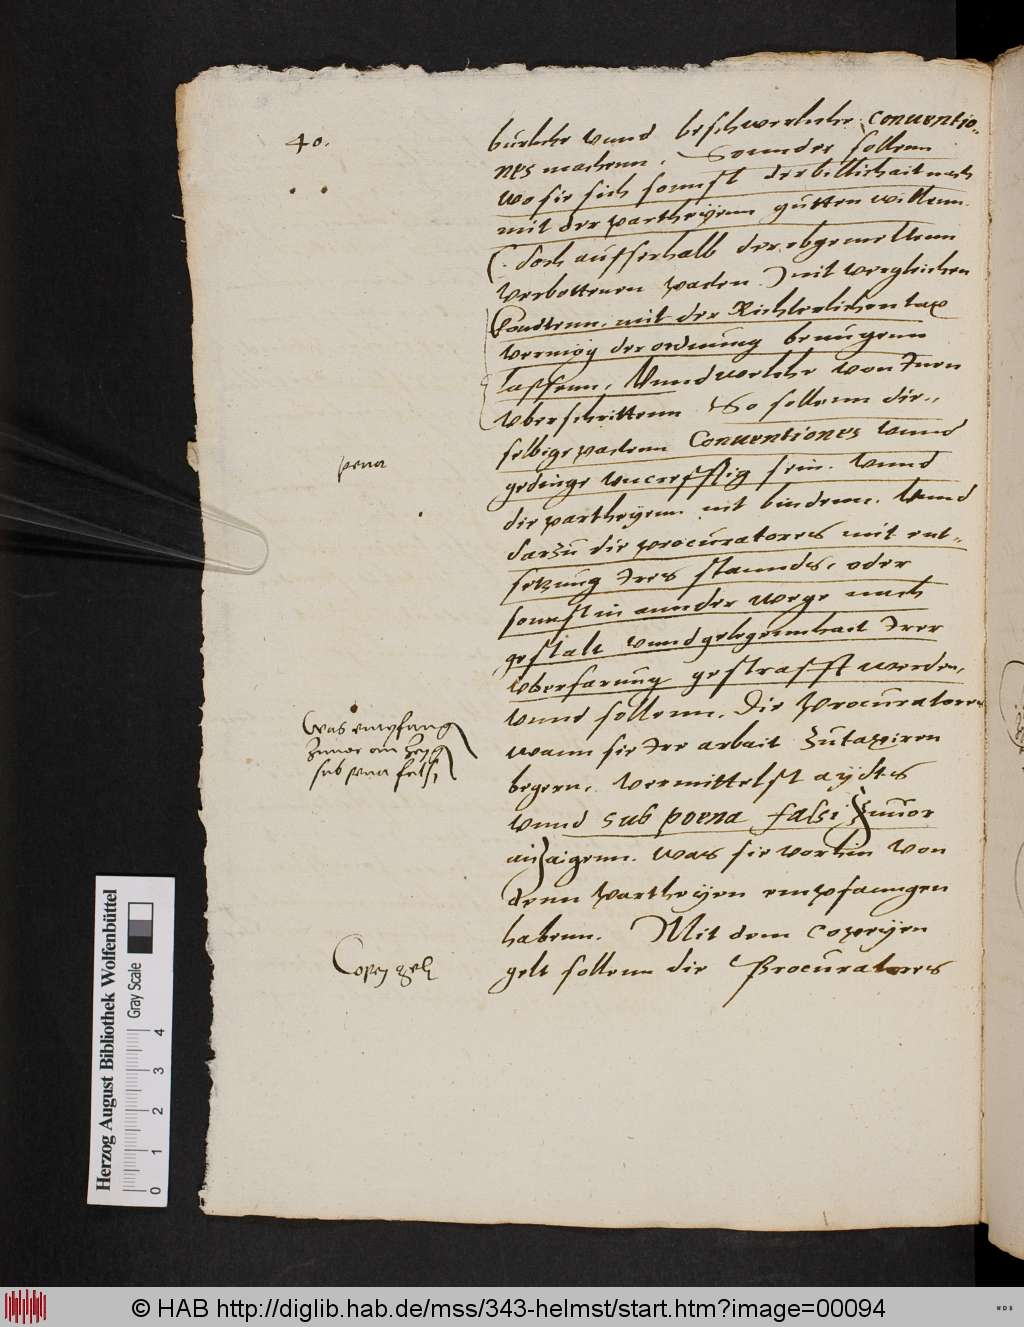 40.
bürliche vnnd beschwerliche conuentio-
nes machenn. Sonnder sollenn
wo sie sich sonnst der billichait nach
mit der partheyenn gutten willenn.
(. doch ausserhalb der obgemeltenn
verbottenen pacten .) nit vergleichen
kondtenn, mit der Richterlichen tax
vermög der ordnung benuegenn
lassenn, Vnnd welche von Inen
vberschrittenn So sollenn die-
selbige pactenn Conuentiones vnnd
gedinge vncrefftig sein. Vnnd
die partheyenn nit bindenn. Vnnd
darzu die procuratores mit ent-
setzung Ires stannds, oder
sonnst in annder wege nach
gestalt vnnd gelegennhait Irer
vberfarung gestrafft werden,
Vnnd sollenn. Die Procuratores
wann sie Ire arbait zutaxiren
begern, vermittelst aydts
vnnd sub poena falsi zuuor
anzaigenn. was sie vorhin von
denn Partheyen empfanngen
habenn. Mit dem Copeyen
gelt sollenn die Procuratores
pena
Was empfang
zuuor an zeyg
sub pena falsi
Copey gelt
Herzog August Bibliothek Wolfenbüttel
Gray Scale
0 1 2 3 4
© HAB http://diglib.hab.de/mss/343-helmst/start.htm?image=00094